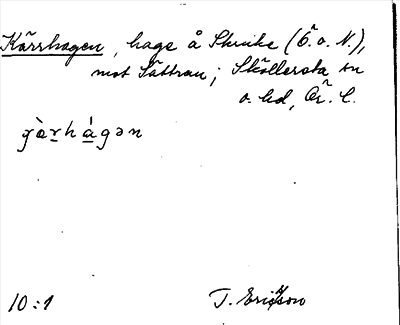 Kärrhagen, hage å Skruke (Ö. o. N.),
mot Sättran; Sköllersta sn
o. hd, Ör. l.
gàrhágən
10:1 T. Ericsson